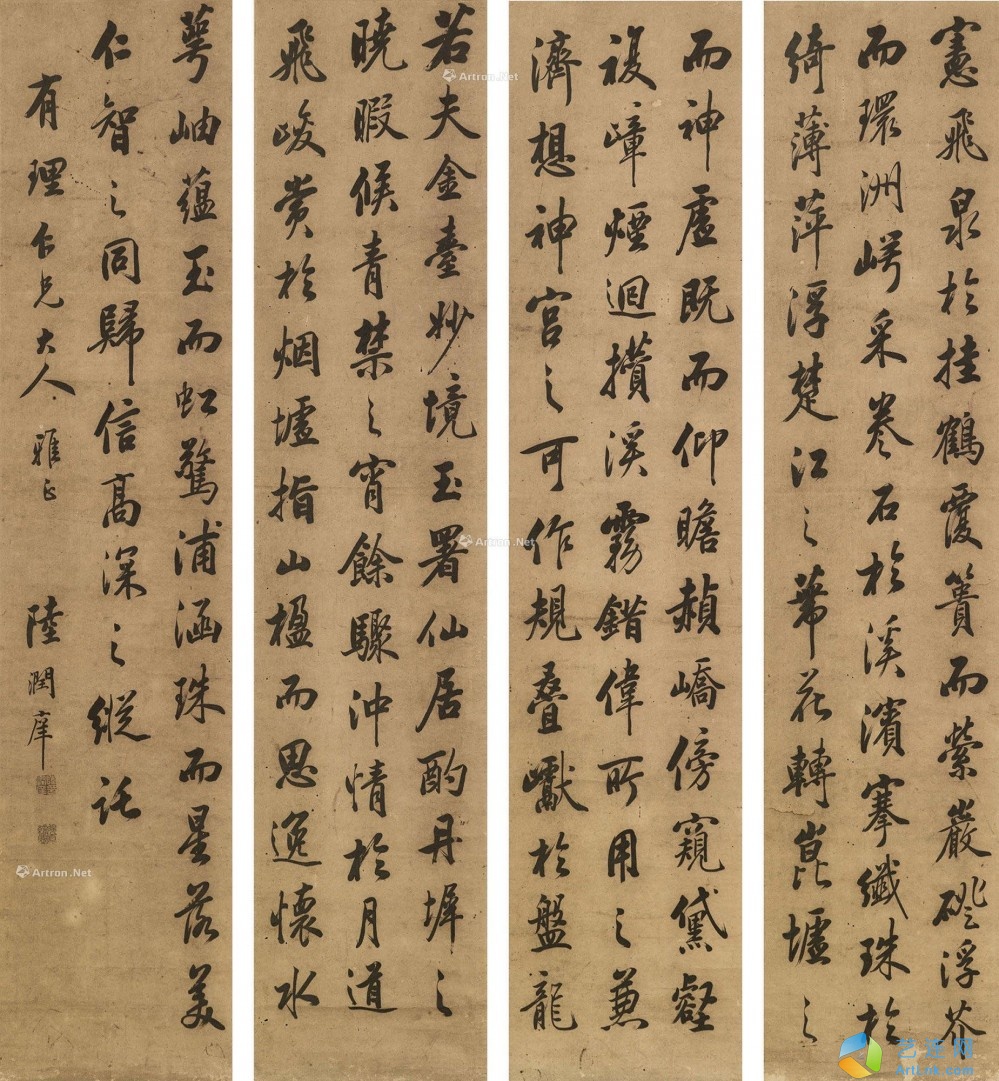 憲飛泉於挂鶴覆簣而縈巖磴浮芥
而環洲崿采卷石於溪濱搴纖珠於
綺薄萍浮楚江之蒂花轉崑墟之
而神虛既而仰瞻赬嶠傍窺黛壑
複嶂煙迴攢溪霧錯偉所用之兼
濟想神宮之可作規疊巘於盤龍
若夫金臺妙境玉署仙居酌丹墀之
曉暇候青禁之宵餘驟沖情於月道
飛峻賞於烟墟指山楹而思逸懷水
萼岫蘊玉而虹驚浦涵珠而星落美
仁智之同歸信高深之縱託
有理仁兄大人雅正
陸潤庠
Artron.Net
Artron.Net
Artron.Net
艺连网
ArtLnk.com